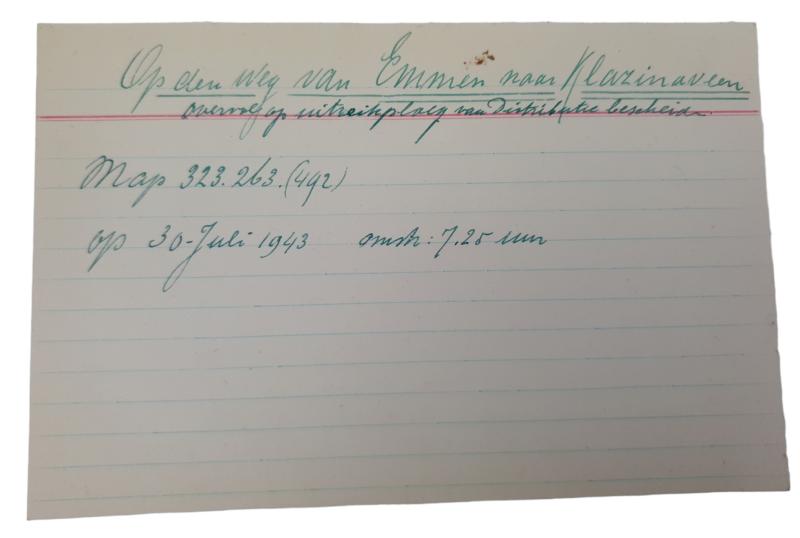 Op den Weg van Emmen naar Klazinaveen
overval op uitreikploeg van Distributie bescheiden
Map 323.263.(492)
op 30-Juli 1943 omstr: 7.25 uur